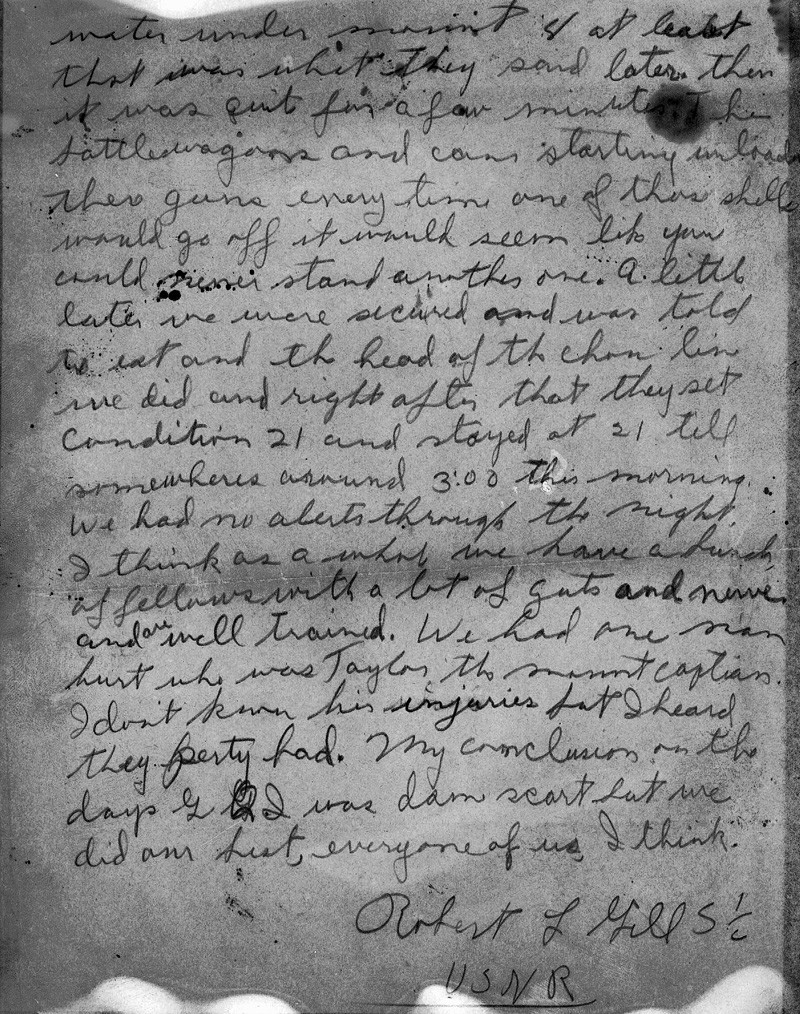 water under mount 4 at least
that was what they said later. then
it was quit for a few minutes The
battlewagons and cans starting unload
ther guns every time one of thos shells
would go off it would seem lik you
could never stand another one. A little
later we were secured and was told
to eat and th head of th chow lin
we did and right after that they set
Condition 21 and stayed at 21 till
somewheres around 3:00 this morning.
We had no alerts through the night.
I think as a whol we have a bunch
of fellows with a lot of guts and nerve
and are well trained. We had one man
hurt who was Taylor th mount captian.
I dont know his injuries but I heard
they perty bad. My comclusion on the
days G Q I was dam scart but we
did our best, everyone of us I think.
Robert L Gill S 1/c
USNR